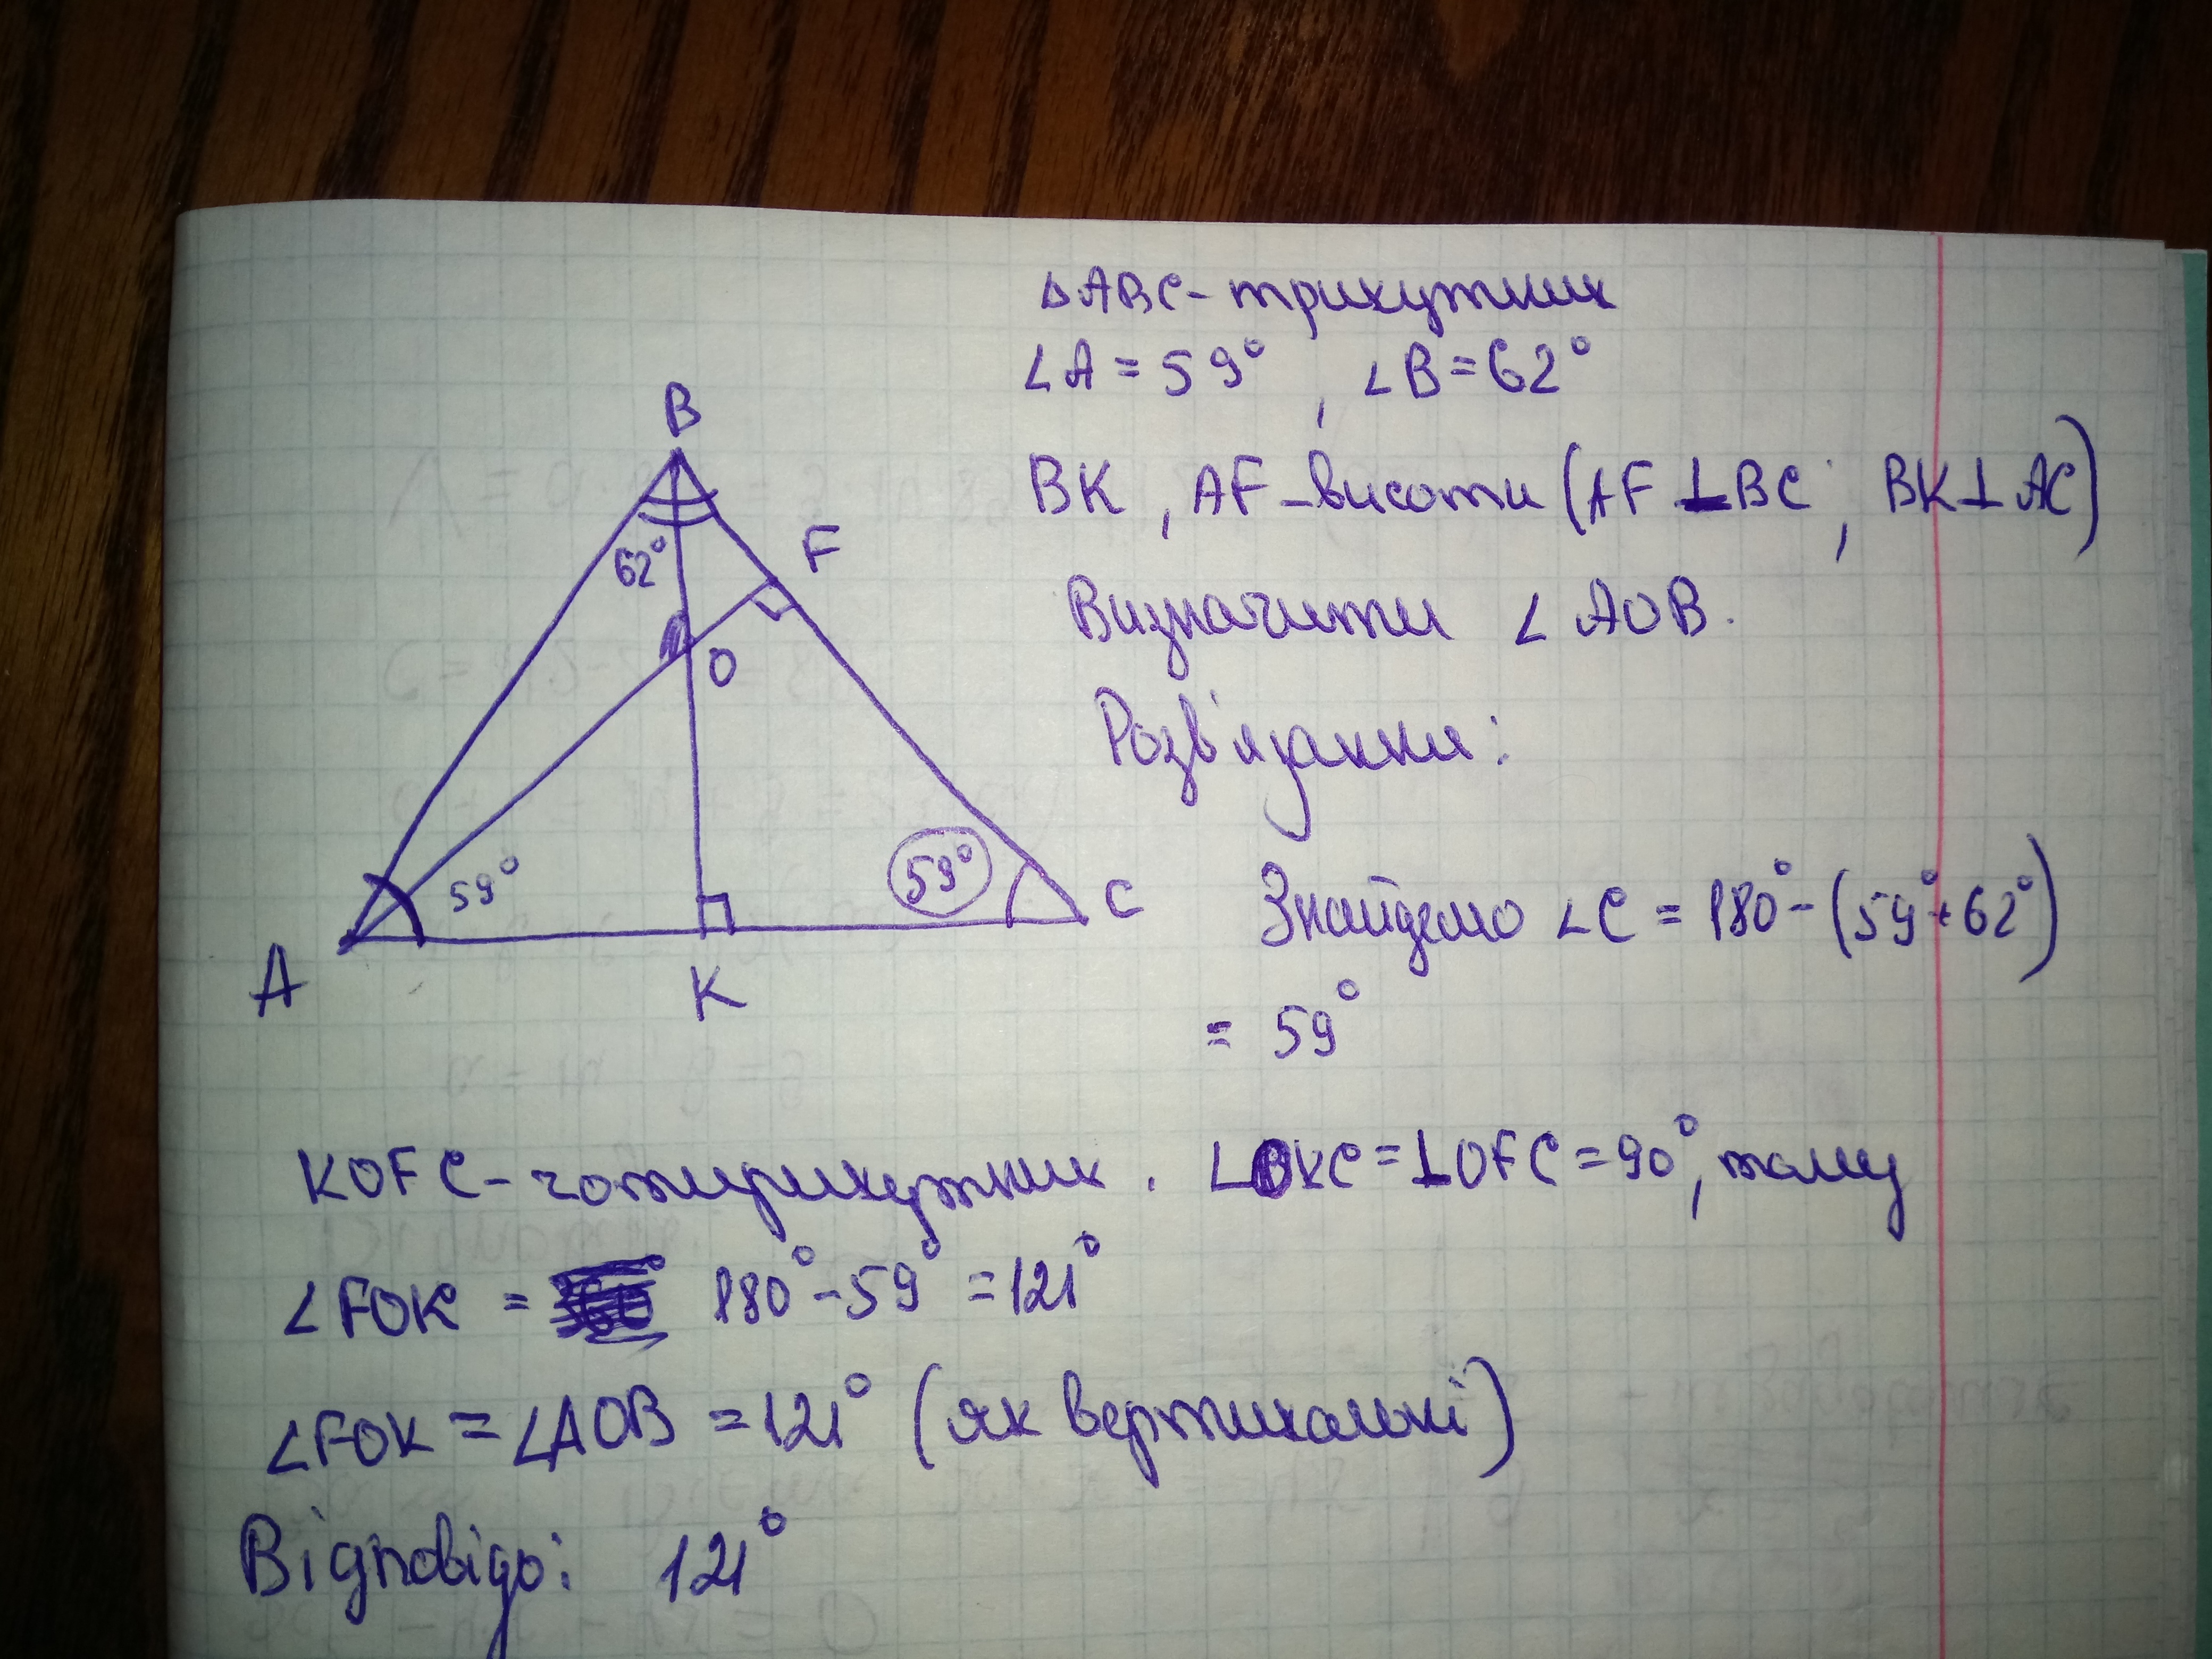 ΔABC - трикутник
∠A = 59° , ∠B = 62°
BK , AF - висоти (AF ⊥ BC ; BK ⊥ AC)
Визначити ∠AOB.
Розв'язання:
Знайдемо ∠C = 180° - (59° + 62°)
= 59°
B
62°
F
O
59°
59°
C
A
K
KOFC - чотирикутник . ∠OKC = ⊥OFC = 90°, тому
∠FOK = 180° - 59° = 121°
∠FOK = ∠AOB = 121° (як вертикальні)
Відповідь: 121°